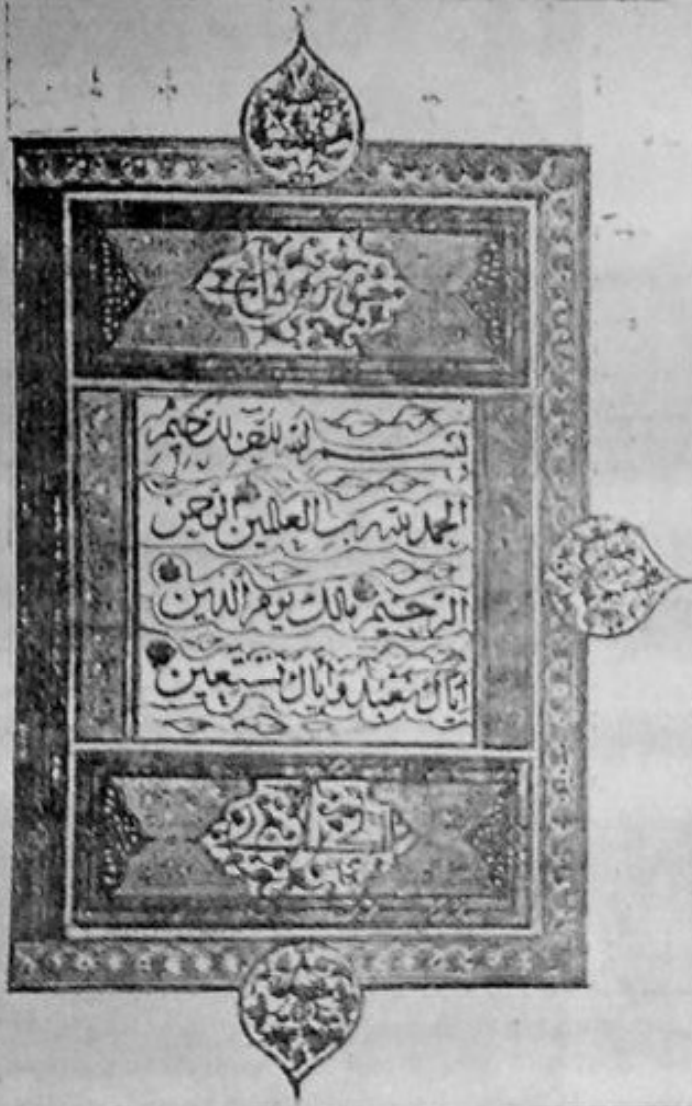 بسم الله الرحمن الرحيم
الحمد لله رب العالمين الرحمن
الرحيم مالك يوم الدين
اياك نعبد واياك نستعين